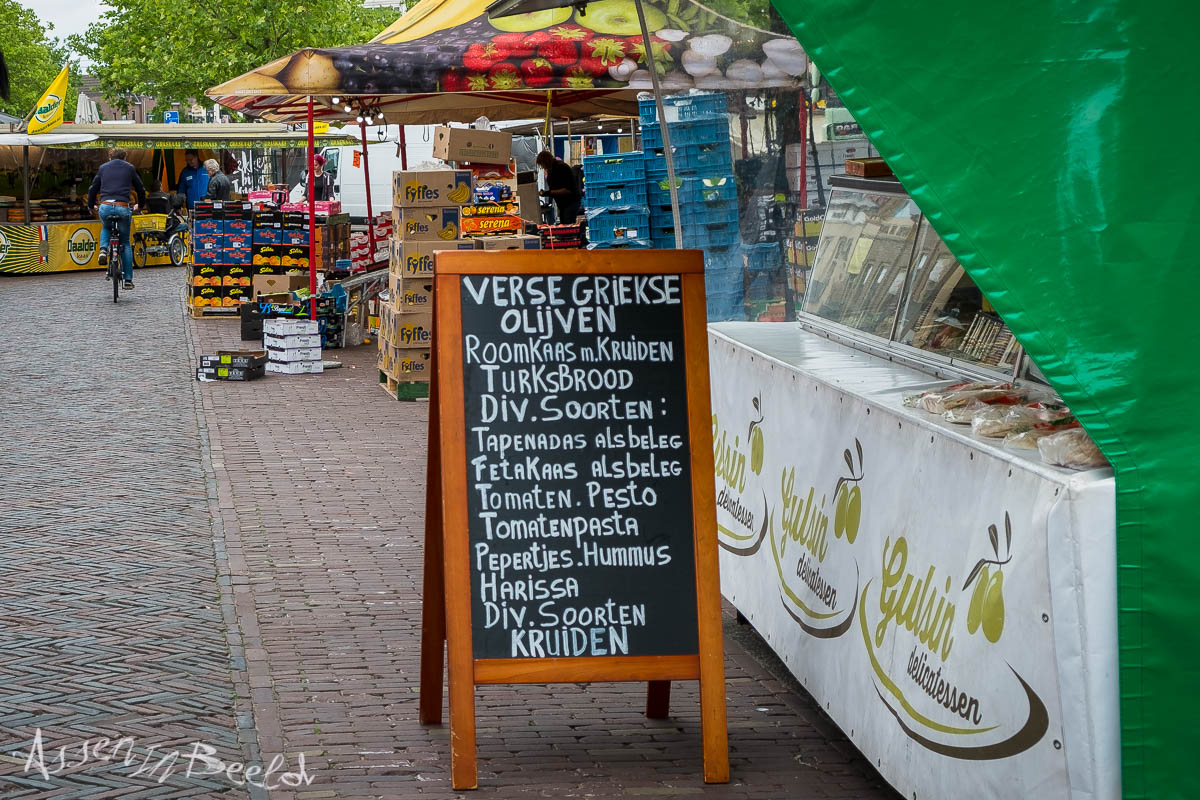 VERSE GRIEKSE
OLIJVEN
ROOMKAAS M. KRUIDEN
TURKSBROOD
DIV. SOORTEN :
TAPENADAS ALSBELEG
FETAKAAS ALSBELEG
TOMATEN. PESTO
TOMATENPASTA
PEPERTJES. HUMMUS
HARISSA
DIV. SOORTEN
KRUIDEN
Gulsin
delicatessen
Gulsin
delicatessen
Gulsin
delicatessen
Fyffes
Fyffes
Fyffes
Fyffes
Fyffes
serena
serena
Daalder
Daalder
P
Assen In Beeld